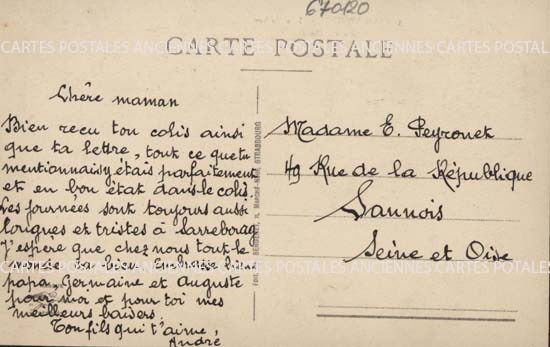 670120
CARTE POSTALE
CARTES POSTALES ANCIENNES CARTES POSTALES ANCIENNES CARTES POTALES
Chère maman
Bien reçu ton colis ainsi
que ta lettre, tout ce que tu
mentionnais y étais parfaitement
et en bon état dans le colis
Les journées sont toujours aussi
longues et tristes à Sarrebourg
J'espère que chez nous tout le
monde va bien Embrasse bien
papa, Germaine et Auguste
pour moi et pour toi mes
meilleurs baisers.
Ton fils qui t'aime,
André
STRASBOURG
Madame E. Peyronet
49 Rue de la République
Sannois
Seine et Oise